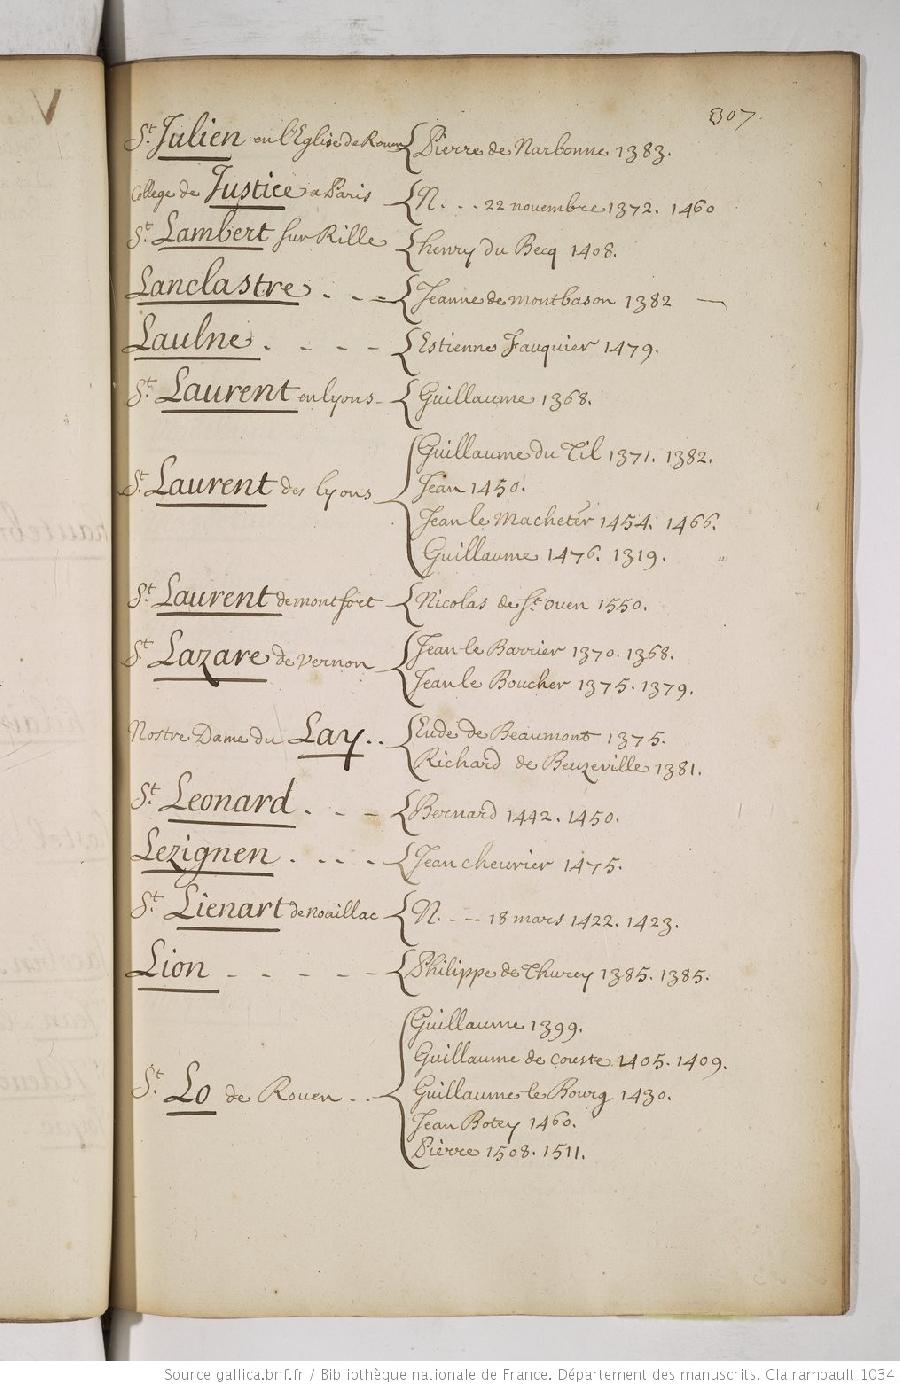 307.
St. Julien en l'Eglise de Rouen { Pierre de Narbonne 1383.
College de Justice a Paris { N. . . 22 novembre 1372. 1460
St. Lambert sur Rille { henry du Becq 1408.
Lanclastre . . = { Jeanne de montbason 1382 —
Laulne . - - - { Estienne Fauquier 1479.
St. Laurent en lyons - { Guillaume 1368.
St. Laurent des lyons { Guillaume du Til 1371. 1382.
Jean 1450.
Jean le Macheter 1454. 1466.
Guillaume 1476. 1319.
St. Laurent de montfort { Nicolas de St. ouen 1550.
St. Lazare de vernon { Jean le Barrier 1370. 1368.
Jean le Boucher 1375. 1379.
Nostre Dame du Lay . . { Eude de Beaumont 1375.
Richard de Beuzeville 1381.
St. Leonard . - - { Bernard 1442. 1450.
Lezignen . . . . { Jean cheurier 1475.
St. Lienart de noaillac { N. - - 18 mars 1422. 1423.
Lion - - - - - { Philippe de Thurey 1385. 1385.
St. Lo de Rouen . . { Guillaume 1399.
Guillaume de couste 1405. 1409.
Guillaume le Bourg 1430.
Jean Botey 1460.
Pierre 1508. 1511.
Source gallica.bnf.fr / Bibliothèque nationale de France. Département des manuscrits. Clairambault 1034